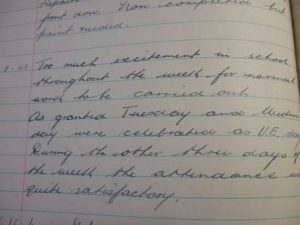 front door. Now completed but
paint needed.
Too much excitement in school
throughout the week for normal
work to be carried out.
As granted Tuesday and
day were celebrated as V.E. day
During the other three days of
the week the attendance
quite satisfactory.